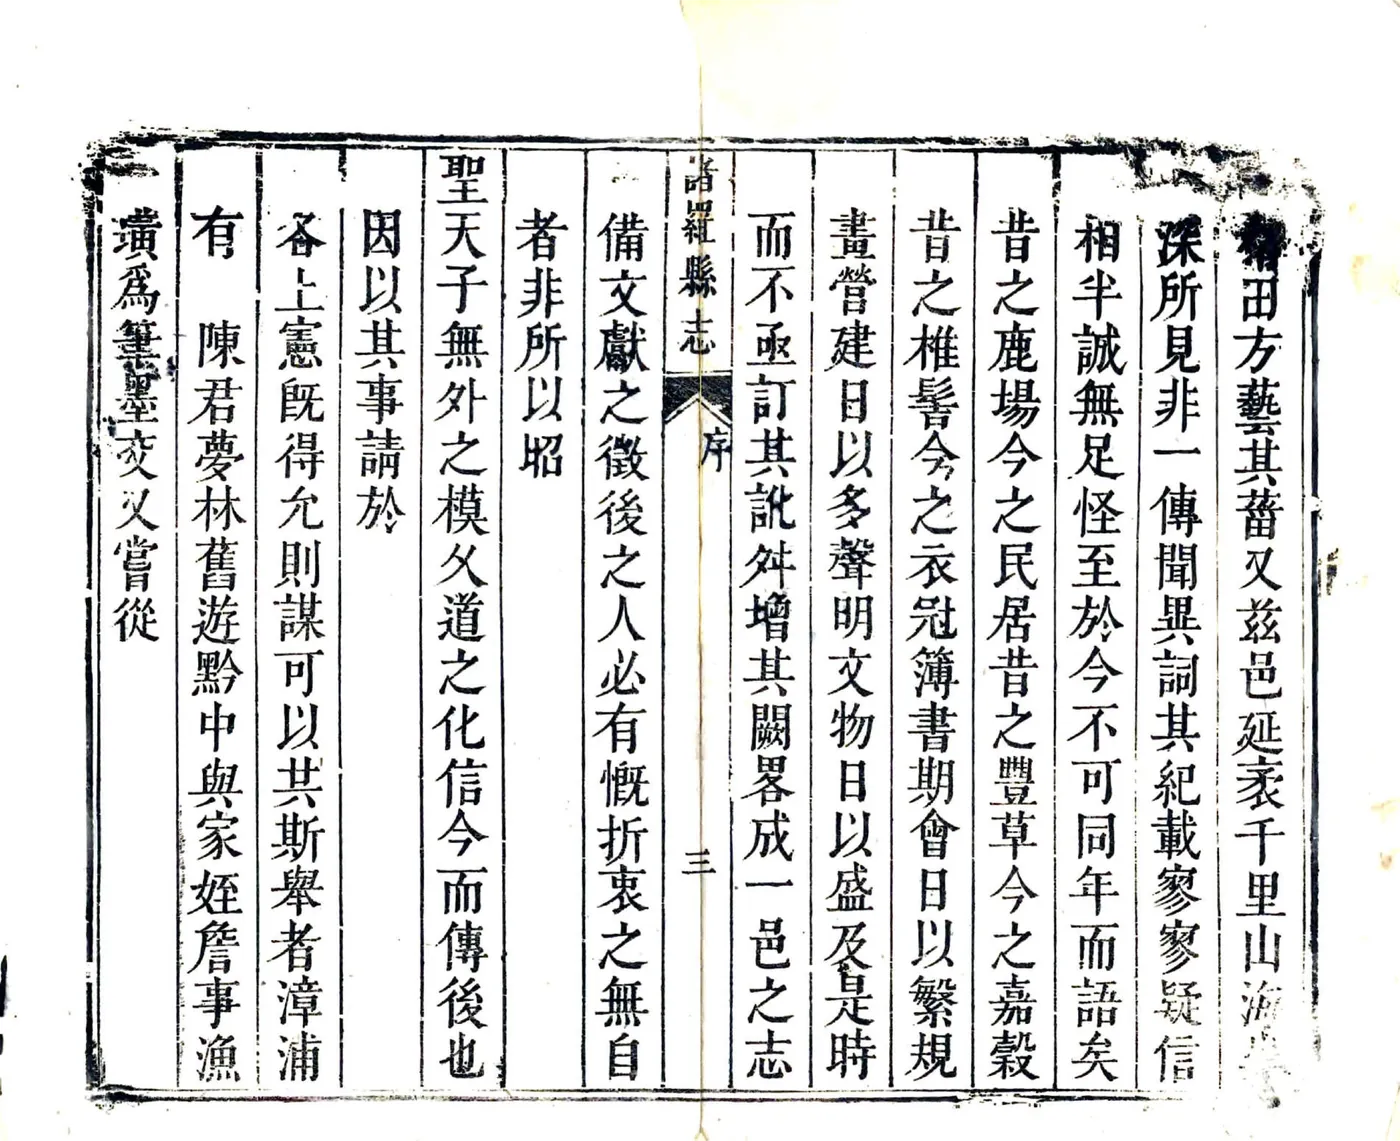 田方藝其菑又兹邑延袤千里山海
深所見非一傳聞異詞其紀載寥寥疑信
相半誠無足怪至於今不可同年而語矣
昔之鹿場今之民居昔之豐草今之嘉穀
昔之椎髻今之衣冠簿書期會日以繁規
畫營建日以多聲明文物日以盛及是時
而不亟訂其訛舛增其闕畧成一邑之志
諸羅縣志 序 三
備文獻之徵後之人必有慨折衷之無自
者非所以昭
聖天子無外之模久道之化信今而傳後也
因以其事請於
各上憲旣得允則謀可以共斯舉者漳浦
有 陳君夢林舊遊黔中與家姪詹事漁
璜爲筆墨交又嘗從